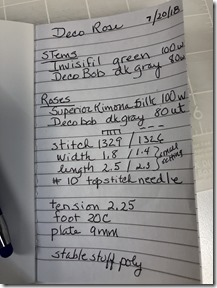 Deco Rose 7/20/18
Stems
Invisifil green 100w
Deco Bob dk gray 80w
Roses
Superior Kimono Silk 100w
Decobob dk gray 80wt
stitch 1329 / 1326
width 1.8 / 1.4
length 2.5 / 2.5
#10 topstitch needle
tension 2.25
foot 20C
plate 9mm
stable stuff poly